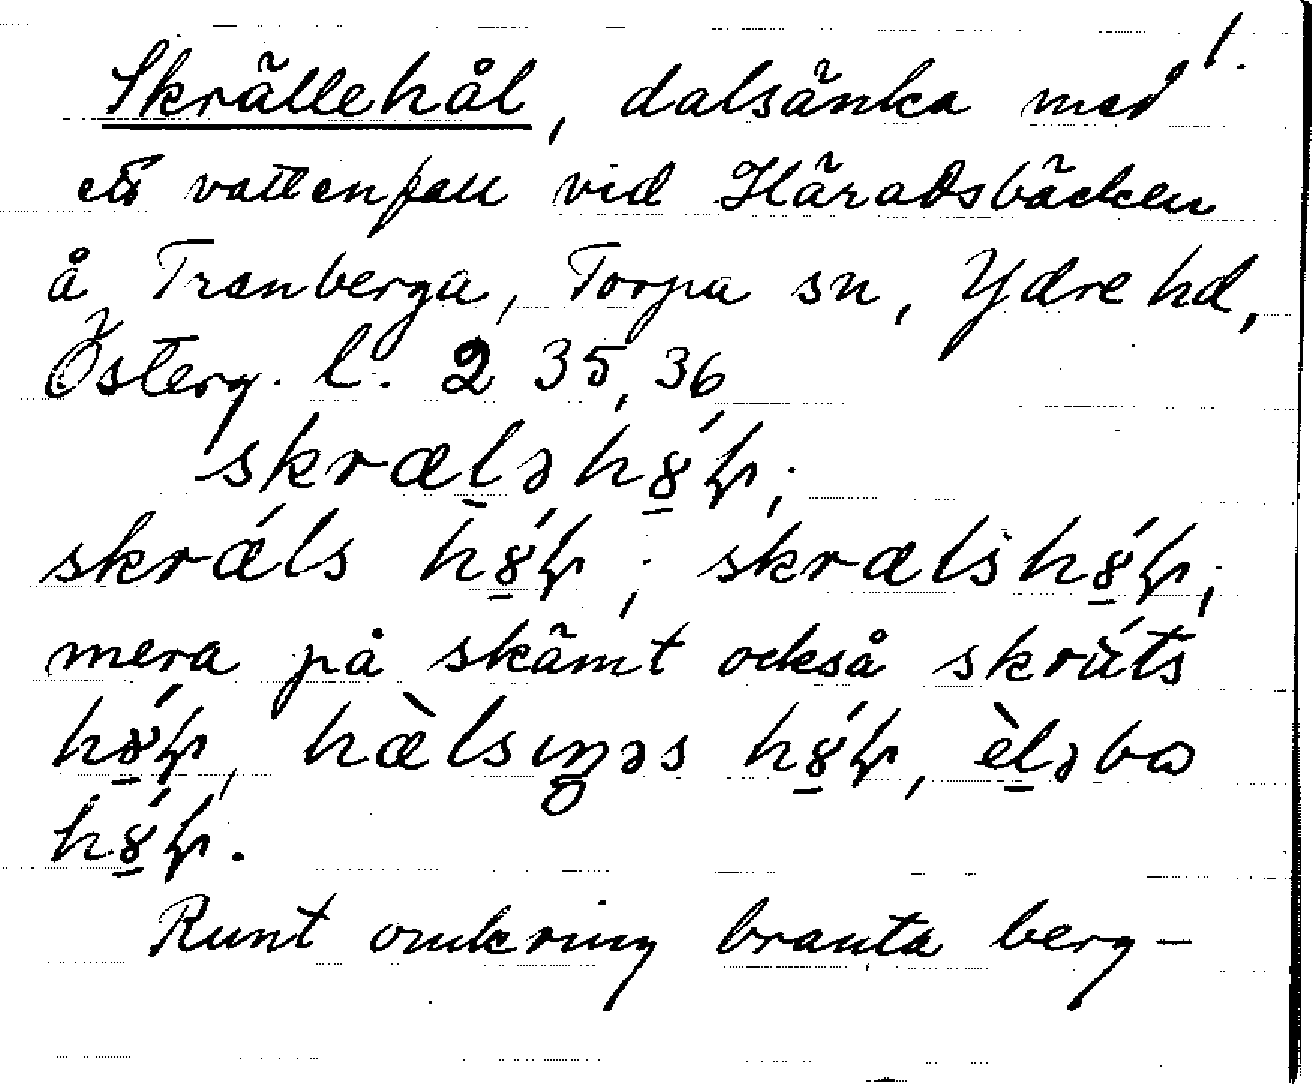 1.
Skrällehål, dalsänka med
ett vattenfall vid Häradsbäcken
å Tranberga, Torpa sn, Ydre hd,
Österg. l. 2 35, 36
skræl̠əh8̠́ɫ;
skrǽls h8̠́ɫ; skrælsh8̠́ɫ;
mera på skämt också skrúts
h8̠́ɫ, hæ̀lsıŋəs h8̠́ɫ, èl̠əba
h8̠́ɫ.
Runt omkring branta berg-